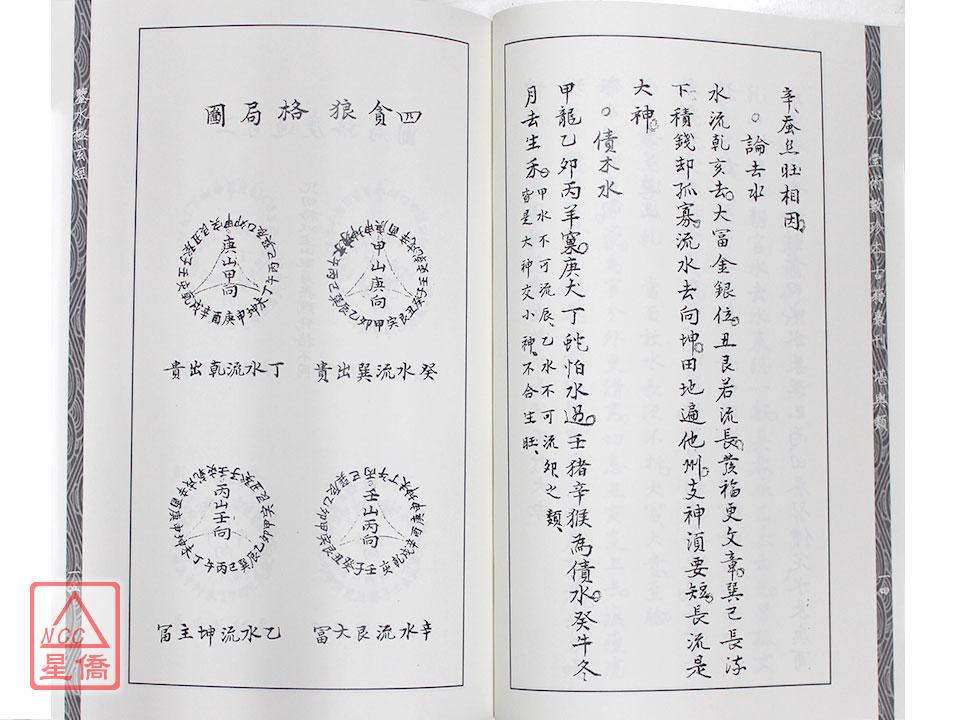 辛、蚕丝旺相因。
○論去水
水流乾亥去。大冨金銀位。丑艮若流長。發福更文章。巽巳長流
下積錢却孤寡。流水去向坤。田地遍他州。支神須要短。長流是
大神。
○債木水
甲龍乙卯丙羊窠。庚犬丁蛇怕水過。壬猪辛猴為債水。癸牛冬
月去生禾。甲水不可流辰、乙水不可流卯之類、
皆是大神交小神、不合生旺、
四貪狼格局圖
甲山庚向
癸水流巽出貴
庚山甲向
丁水流乾出貴
壬山丙向
辛水流艮大冨
丙山壬向
乙水流坤主冨
堪輿類
NCC
星僑